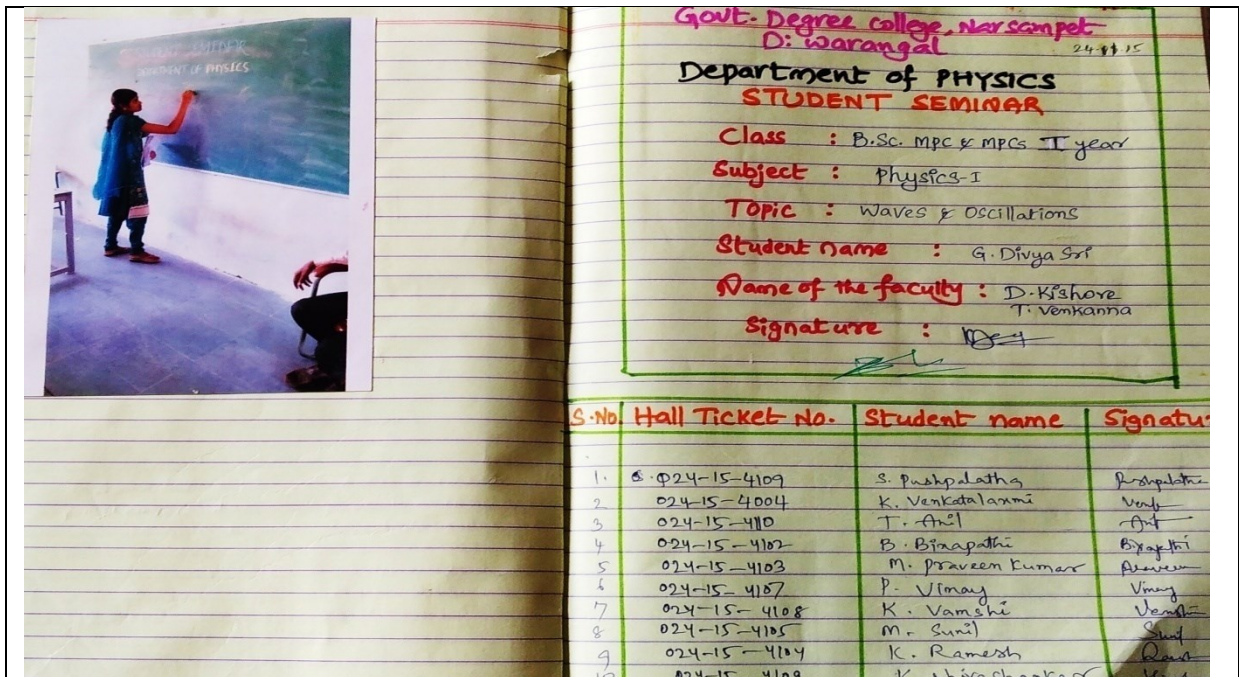 STUDENT SEMINAR
DEPARTMENT OF PHYSICS
Govt. Degree college, Narsampet
D: Warangal
24-11-15
Department of PHYSICS
STUDENT SEMINAR
Class : B.Sc. MPC & MPCs I year
Subject : Physics-I
Topic : Waves & Oscillations
Student name : G. Divya Sri
Name of the faculty : D. Kishore
T. Venkanna
Signature :
S.No. Hall Ticket No. Student name Signatu
1. 024-15-4109 S. Pushpalatha Pushpalatha
2 024-15-4004 K. Venkatalaxmi
3 024-15-410 T. Anil Anil
4 024-15-4102 B. Bixapathi Bixapathi
5 024-15-4103 M. Praveen Kumar Praveen
6 024-15-4107 P. Vinay Vinay
7 024-15-4108 K. Vamshi Vamshi
8 024-15-4105 M. Sunil Sunil
9 024-15-4104 K. Ramesh